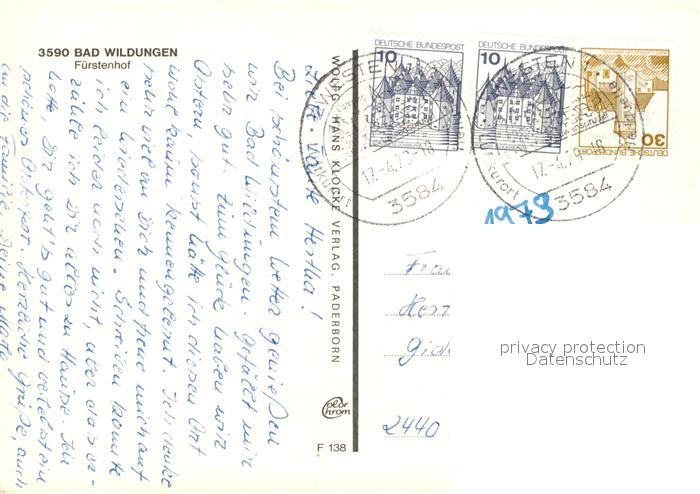 3590 BAD WILDUNGEN
Fürstenhof
WOLFG. HANS KLOCKE VERLAG, PADERBORN
color
chrom
F 138
DEUTSCHE BUNDESPOST
10
DEUTSCHE BUNDESPOST
10
DEUTSCHE BUNDESPOST
30
17.-4.79-18
3584
17.-4.79-18
3584
1979
Tante Hertha!
Bei schönstem Wetter genießen
wir Bad Wildungen. Gefällt mir
sehr gut. Zum Glück haben wir
Ostern, sonst hätte ich diesen Ort
wohl kaum kennengelernt. Ich denke
sehr viel an Dich und freue mich auf
ein Wiedersehen. Schreiben konnte
ich leider noch nicht, aber das er-
zähle ich Dir alles zu Hause. Ich
hoffe, Dir geht's gut und verlebst ein
schönes Osterfest. Herzliche Grüße, auch
an die Familie, Deine
Frau
Her
Gie
2440
privacy protection
Datenschutz